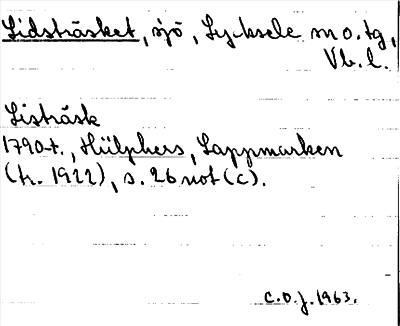 Lidsträsket, sjö, Lycksele m o. tg,
Vb. l.
Listräsk
1790-t., Hülphers, Lappmarken
(tr. 1922), s. 26 not (c).
C.O.J. 1963.